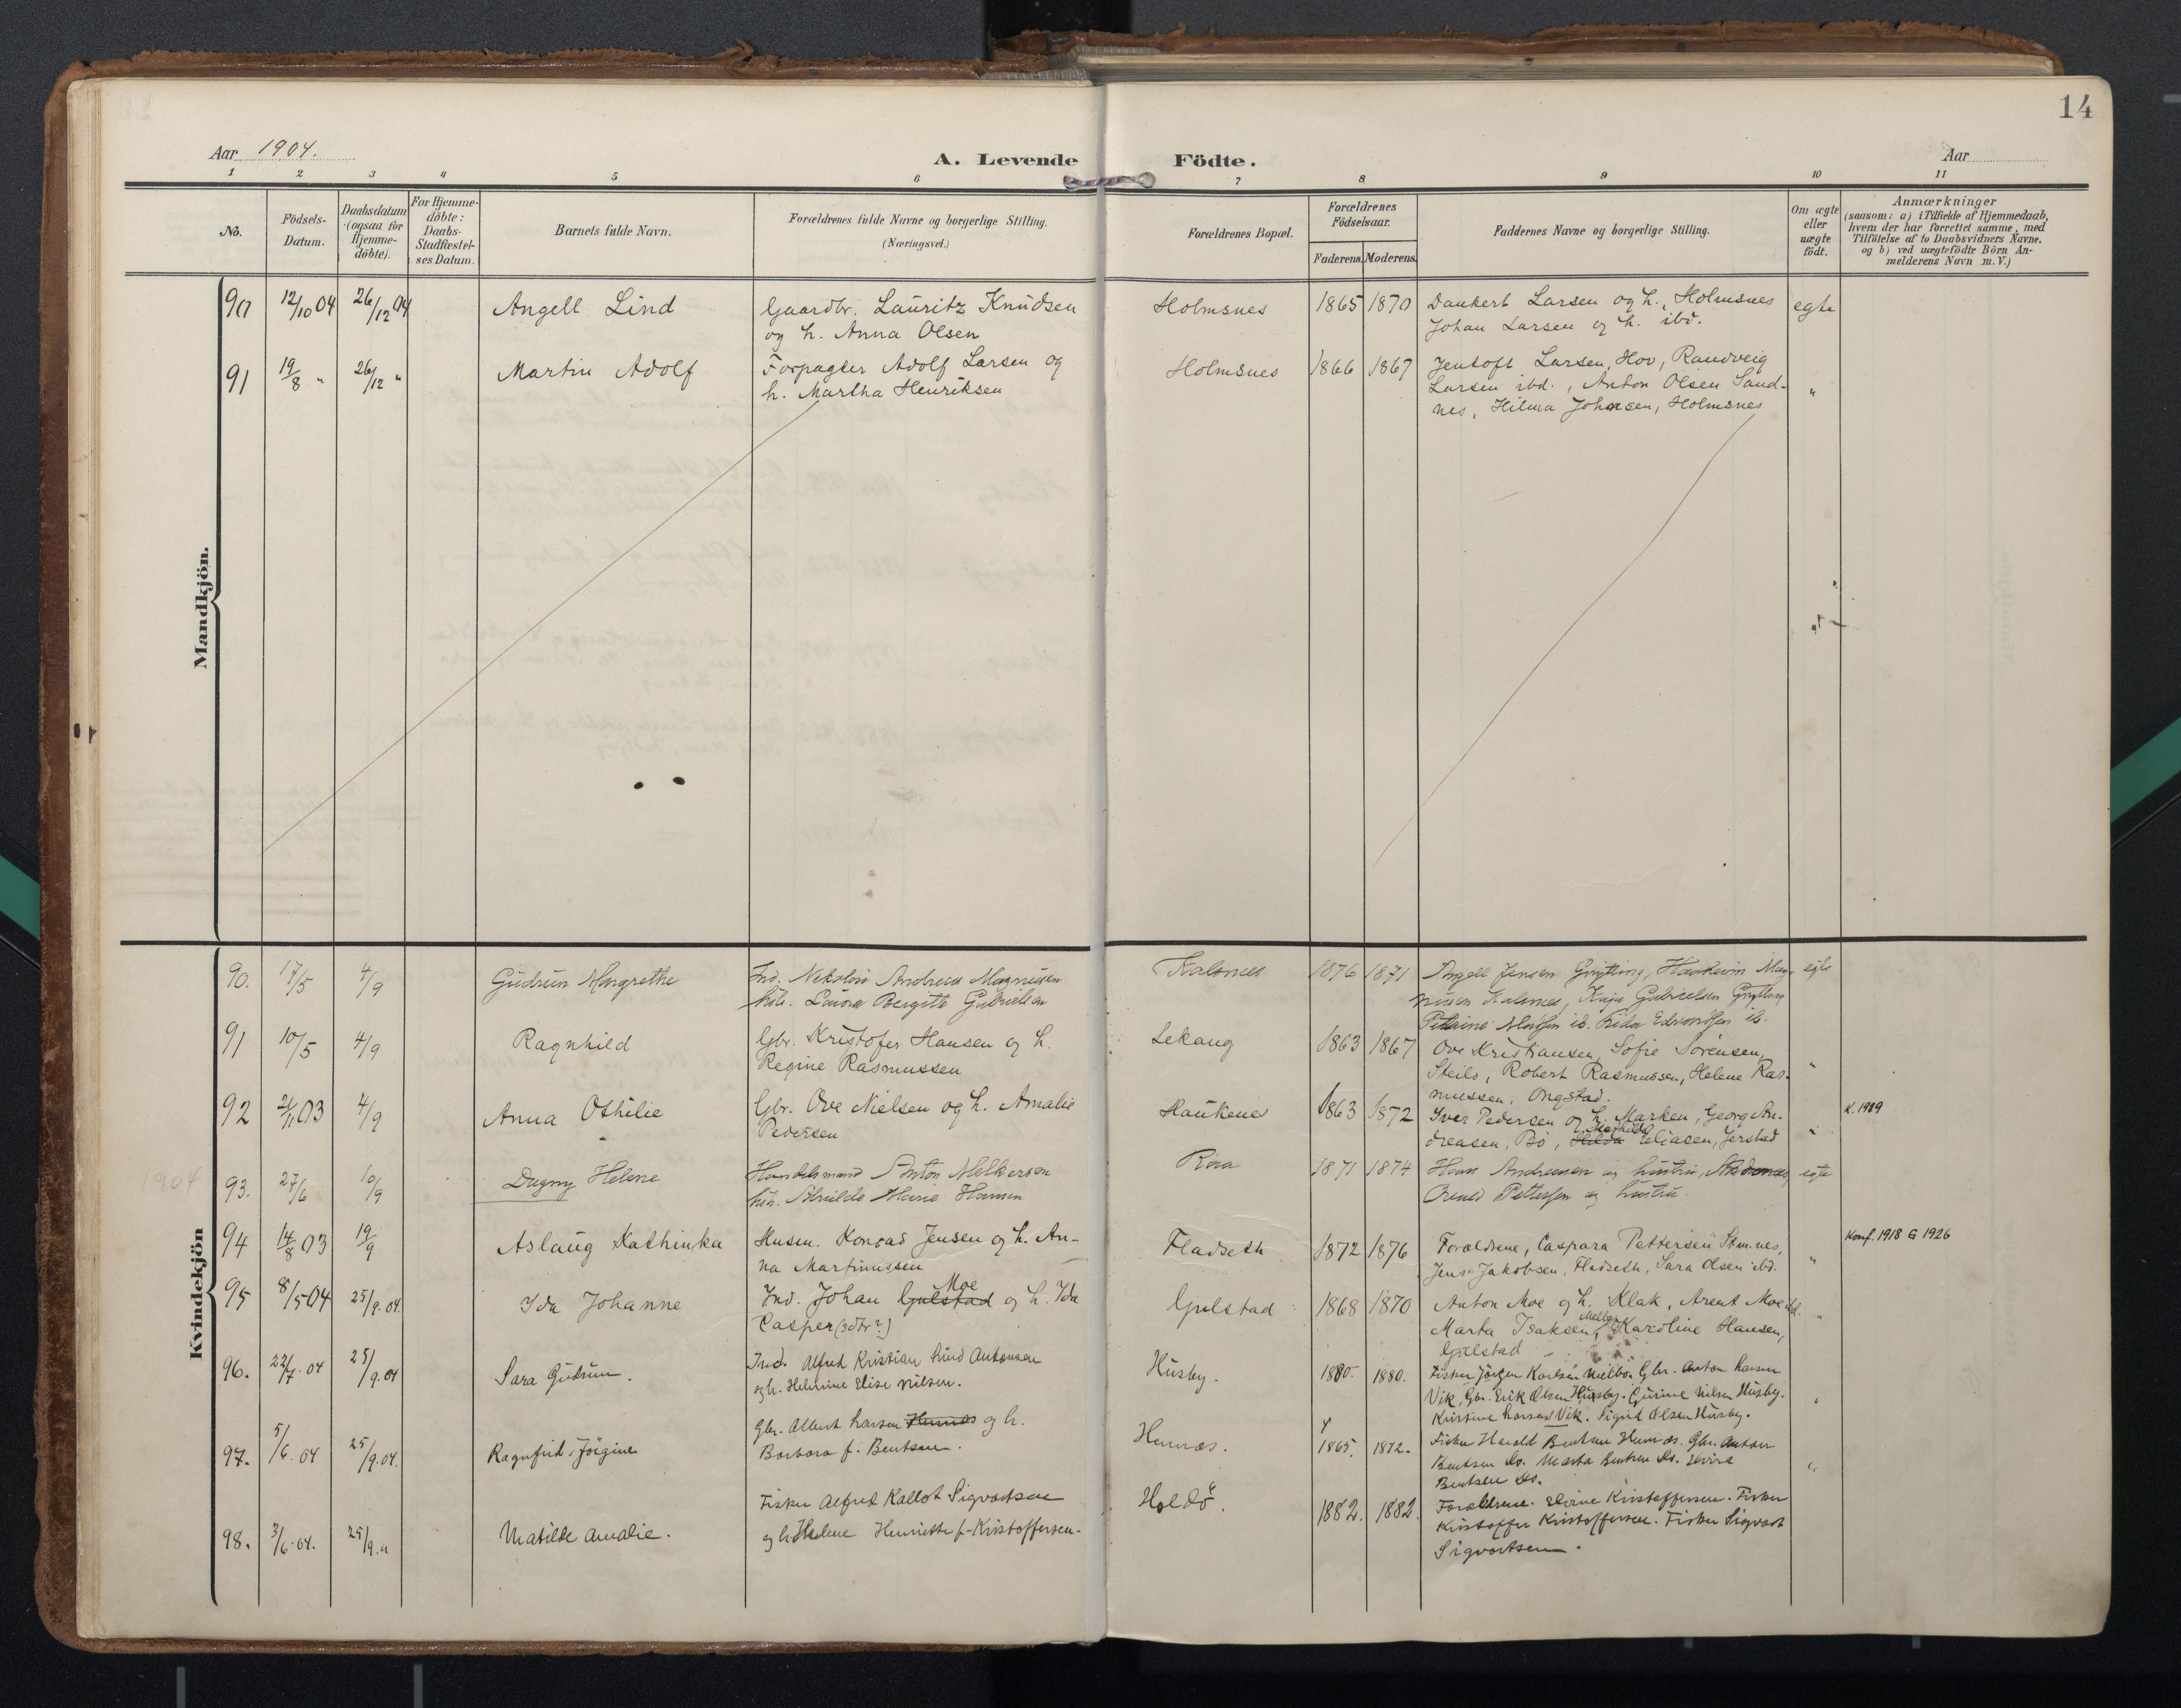 14
Aar 1904.
A. Levende Födte.
Aar
1 2 3 4 5 6 7 8 9 10 11
No.
Födsels-Datum.
Daabsdatum (ogsaa for Hjemme-döbte).
For Hjemme-döbte: Daabs-Stadfæstel-ses Datum.
Barnets fulde Navn.
Forældrenes fulde Navne og borgerlige Stilling.
(Næringsvei.)
Forældrenes Bopæl.
Forældrenes Födselsaar.
Faderens. Moderens.
Faddernes Navne og borgerlige Stilling.
Om ægte eller uægte födt.
Anmærkninger
(saasom: a) i Tilfælde af Hjemmedaab,
hvem der har forrettet samme, med
Tilföielse af to Daabsvidners Navne.
og b) ved uægtefödte Börn An-
melderens Navn m. V.)
Mandkjön.
90 12/10 04 26/12 04 Angell Lind Gaardbr. Lauritz Knudsen Holmsnes 1865 1870 Dankert Larsen og h., Holmsnes egte
og h. Anna Olsen Johan Larsen og h. ibd.
91 19/8 " 26/12 " Martin Adolf Forpagter Adolf Larsen og Holmsnes 1866 1867 Jentoft Larsen, Hov, Randveig
h. Martha Henriksen Larsen ibd., Anton Olsen Sand- "
nes, Hilma Johnsen, Holmsnes
Kvindekjön
90. 17/5 4/9 Gudrun Margrethe Ind. Nikolai Andreas Magnusen Kalsnes 1876 1871 Angell Jensen Grytting, Magegte
hstr. Laura Bergitte Gabrielsen nusen Kalsnes, Kaja Gabrielsen
ib. Edvardsen ib.
91 10/5 4/9 Ragnhild Gbr. Kristofer Hansen og h. Lekang 1863 1867 Ove Kristiansen, Sofie Sörensen,
Regine Rasmussen Steilo, Robert Rasmussen, Helene Ras- "
mussen, Ongstad.
92 21/11 03 4/9 Anna Othilie Gbr. Ove Nielsen og h. Amalie Haukenes 1863 1872 Iver Pedersen og h. Marken, Georg An- K. 1919
Pedersen dreasen, Bö, Hilda Eliasen, Jerstad "
1904
93. 27/6 10/9 Dagny Helene Handelsmand Anton Melkersen 1871 1874 Hans Andreasen og hustru, egte
Marie Hansen Pettersen og hustru.
94 14/8 03 19/9 Aslaug Kathinka Husm. Konrad Jensen og h. An- Fladseth 1872 1876 Forældrene, Caspara Pettersen Stm.nes, Konf. 1918 G 1926
na Martinussen Jens Jakobsen, Fladseth, Sara Olsen ibd. "
95 8/5 04 25/9. 04. Ida Johanne Ind. Johan Gulstad Moe og h. Ida Gulstad 1868 1870 Anton Moe og h. Klak, Arent Moe ibd.
Casper (sdtr?) Marta Isaksen, Karoline Hansen, "
Gulstad
96. 22/7. 04 25/9. 04 Sara Gudrun. Ind. Alfred Kristian Lind Antonsen Husby. 1880. 1880. Fisker Jörgen Karlsen Gbr. Anton Larsen
og h. Helmine Elise Nilsen. Vik, Gbr. Erik Olsen Husby. Gurine Nilsen Husby. "
Kristine Larsen Vik. Sigrid Olsen Husby.
97. 5/6. 04 25/9. 04. Ragnfrid Jörgine Gbr. Albert Larsen Hemnæs og h. Hemnæs. 1865. 1872. Fisker Harald Bentsen Hemnæs. Gbr. Anton
Barbara f. Bentsen. Bentsen do. Marta Bentsen do. Elvire "
Bentsen do.
98. 3/6. 04. 25/9. " Matilde Amalie. Fisker Alfred Kallot Sigvartsen Holdö. 1882. 1882. Forældrene. Elvine Kristoffersen. Fisker
og h. Helene Henriette f. Kristoffersen. Kristoffer Kristoffersen. Fisker Sigvart
Sigvartsen.